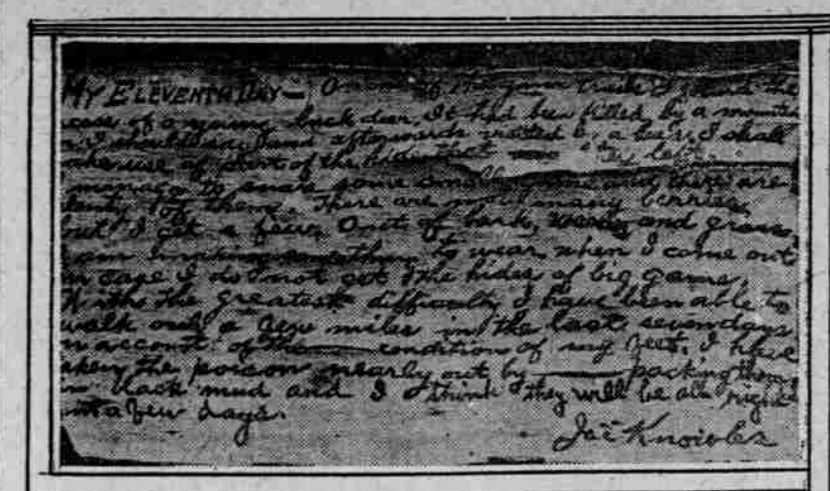 MY ELEVENTH DAY— On one of the game trails I found the
case of a young buck deer. It had been killed by a mountain
n I should say, and afterwards visited by a bear. I shall
make use of part of the hide that they left.
manage to snare some small game and there are
plenty of them. There are not many berries,
but I get a few. Out of bark, and grass,
I am making something to wear when I come out
in case I do not get the hides of big game.
With the greatest difficulty I have been able to
walk only a few miles in the last seven days
on account of the condition of my feet. I have
taken the poison nearly out by packing them
in black mud and I think they will be all right
in a few days.
Joe Knowles